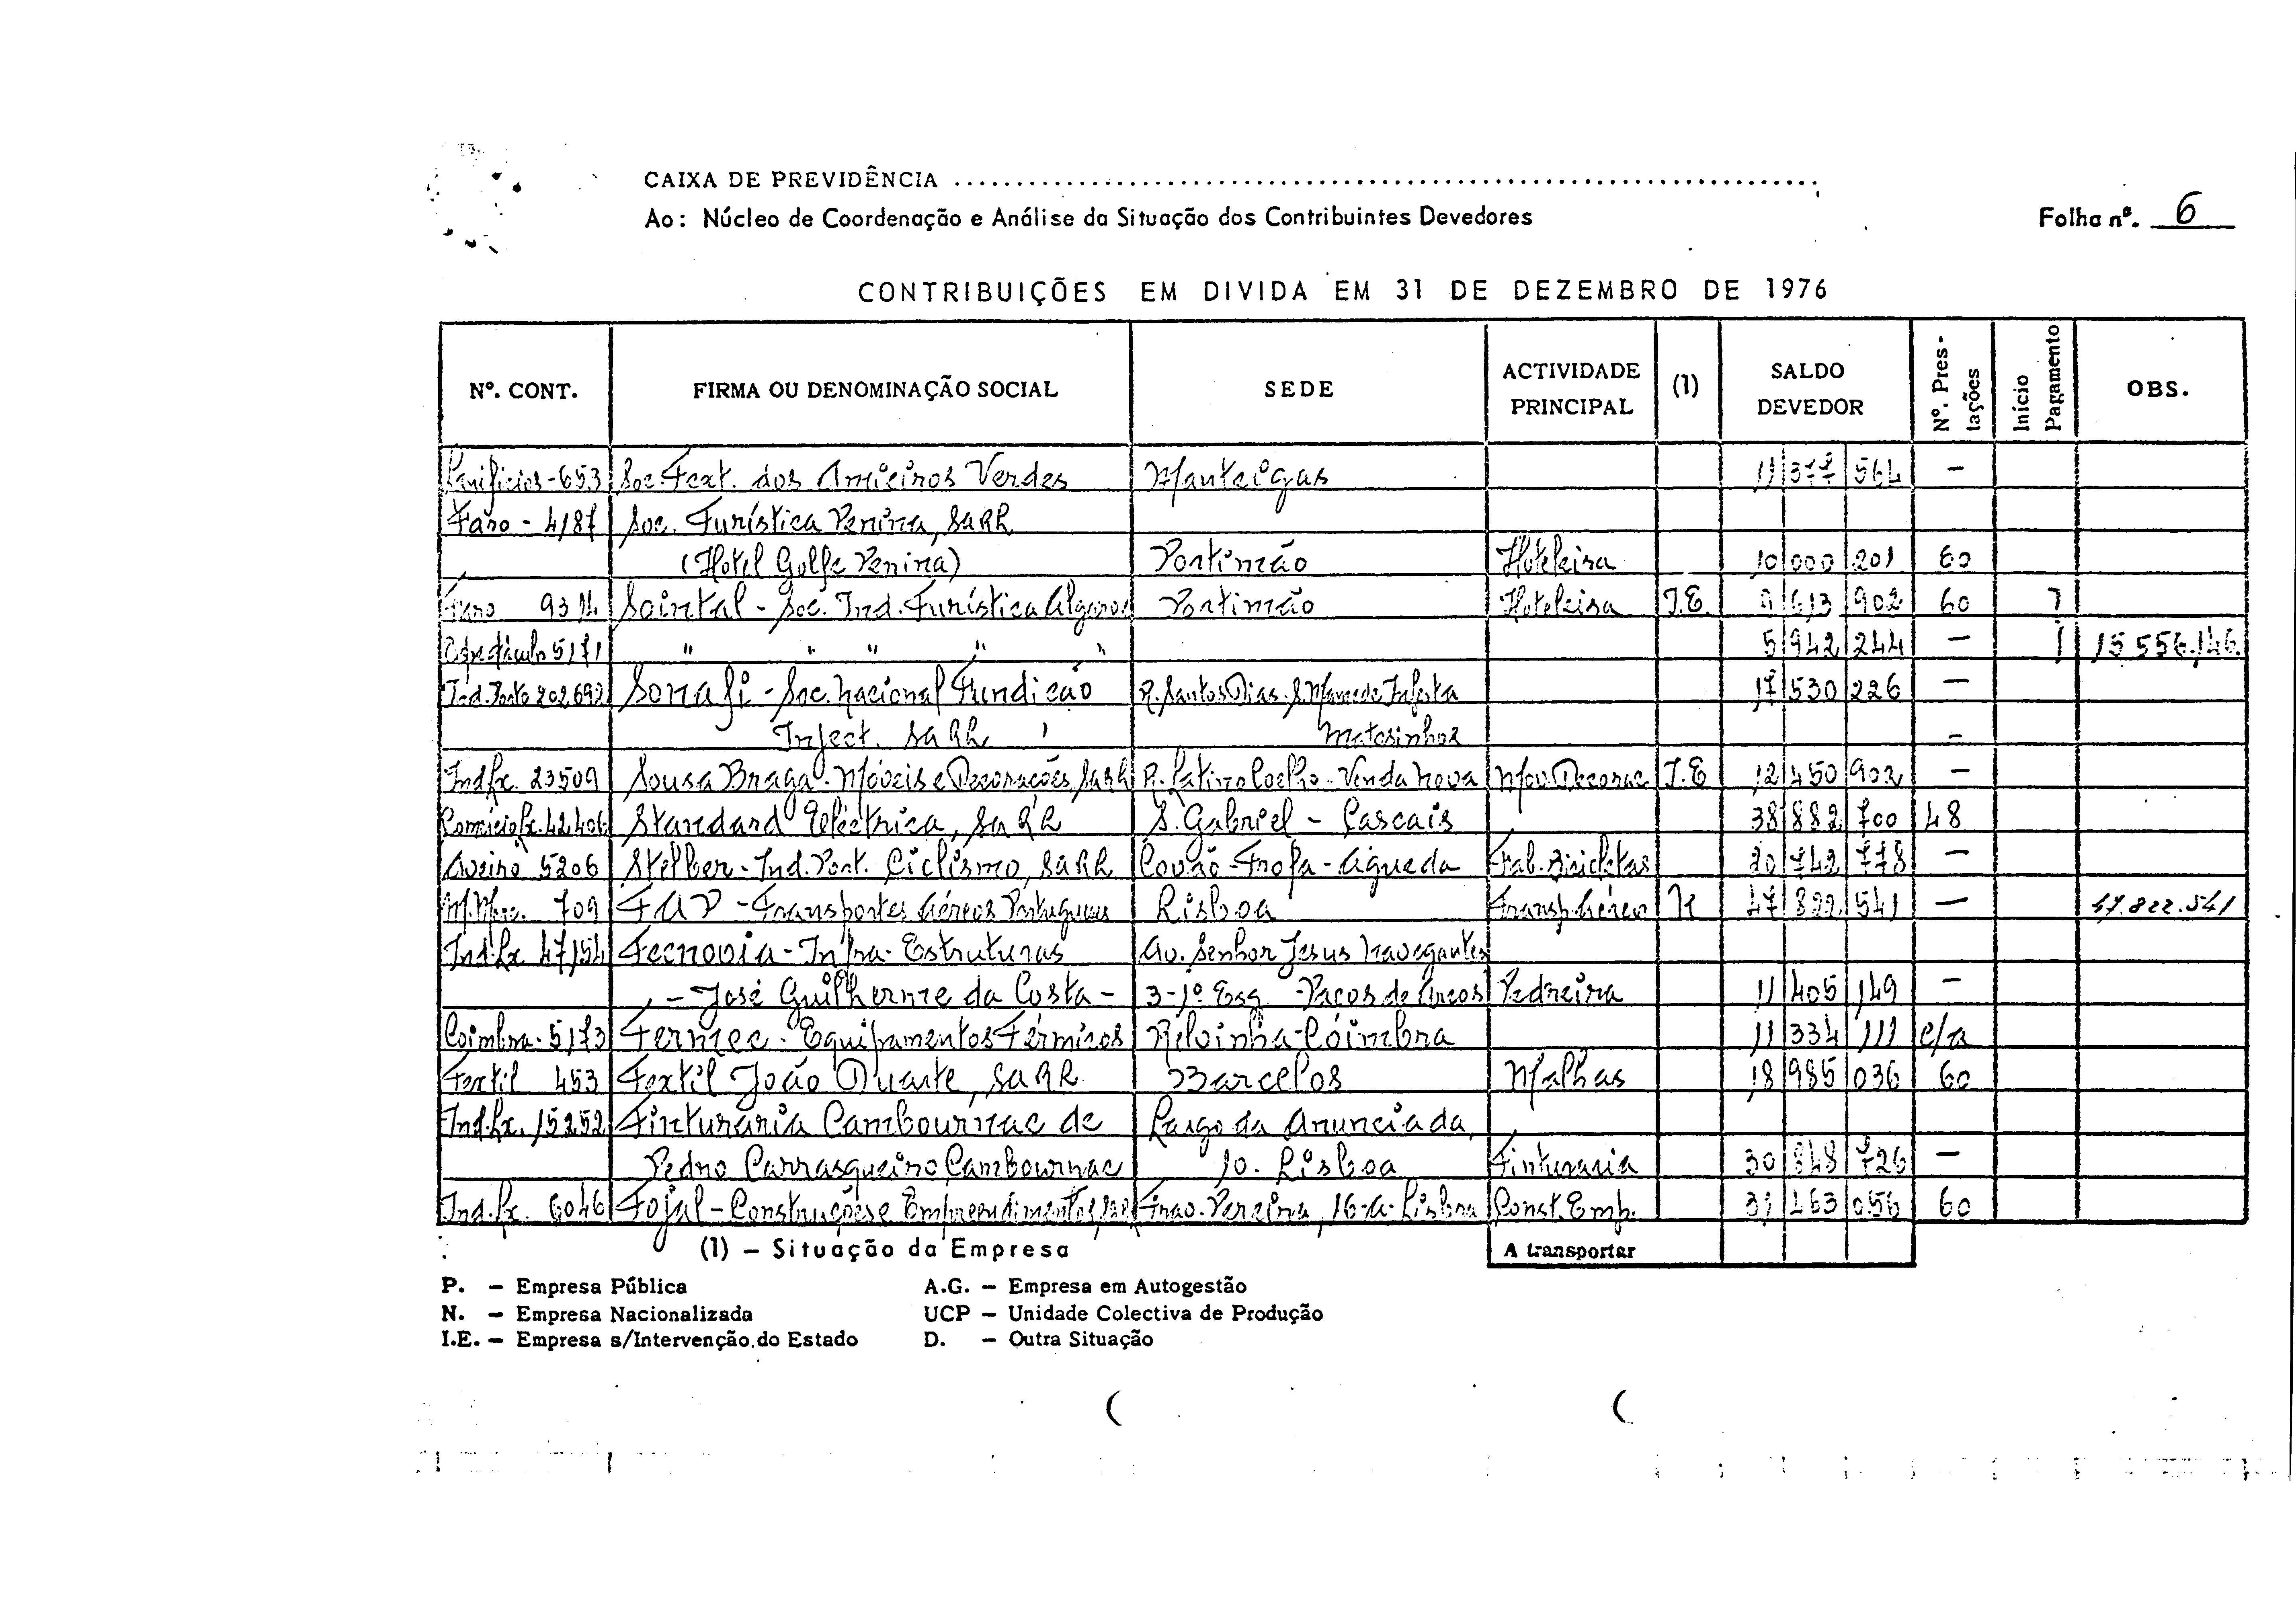 CAIXA DE PREVIDÊNCIA ........................................................................
Ao: Núcleo de Coordenação e Análise da Situação dos Contribuintes Devedores
Folha nº. 6
CONTRIBUIÇÕES EM DIVIDA EM 31 DE DEZEMBRO DE 1976
Nº. CONT. FIRMA OU DENOMINAÇÃO SOCIAL SEDE ACTIVIDADE PRINCIPAL (1) SALDO DEVEDOR Nº. Prestações Início Pagamento OBS.
Lanifícios-653 Soc. Text. dos Amieiros Verdes Manteigas 11 377 564 —
Faro - 4187 Soc. Turística Penina, SARL
(Hotel Golfe Penina) Portimão Hoteleira 10 000 201 60
Faro 9314 Sointal - Soc. Ind. Turística Algarve Portimão Hoteleira I.E. 9 613 902 60
Espectáculo 5171 " " " " " 5 942 244 — 15 556.146.
Ind. Porto 202692 Sonafi - Soc. Nacional Fundição R. Santos Dias - S. Mamede Infesta 17 530 226 —
Inject. SARL Matosinhos —
Ind. Lx. 23509 Sousa Braga - Móveis e Decorações, SARL R. Latino Coelho - Venda Nova Mov. Decorac I.E 12 450 902 —
Comércio Lx. 42406 Standard Eléctrica, SARL S. Gabriel - Cascais 38 882 700 48
Aveiro 5206 Stelber - Ind. Port. Ciclismo, SARL Covão - Trofa - Águeda Fab. Bicicletas 20 742 778 —
709 TAP - Transportes Aéreos Portugueses Lisboa Transp. Aéreo N 47 822 541 — 47.822.541
Ind. Lx 47154 Tecnovia - Infra-Estruturas Av. Senhor Jesus Navegantes
- José Guilherme da Costa - 3-1º Esq - Paços de Arcos Pedreira 11 405 149 —
Coimbra - 5173 Termec - Equipamentos Térmicos Relvinha - Coimbra 11 334 111 c/a
Textil 453 Textil João Duarte, SARL Barcelos Malhas 18 985 036 60
Ind. Lx. 15252 Tinturaria Cambournac de Largo da Anunciada,
Pedro Carrasqueiro Cambournac 10. Lisboa Tinturaria 30 848 726 —
Ind. Lx. 6046 Tojal - Construções e Empreendimentos, SARL Trav. Pereira, 16-A-Lisboa Const. Emp. 31 463 056 60
(1) — Situação da Empresa A transportar
P. — Empresa Pública A.G. — Empresa em Autogestão
N. — Empresa Nacionalizada UCP — Unidade Colectiva de Produção
I.E. — Empresa s/Intervenção do Estado D. — Outra Situação